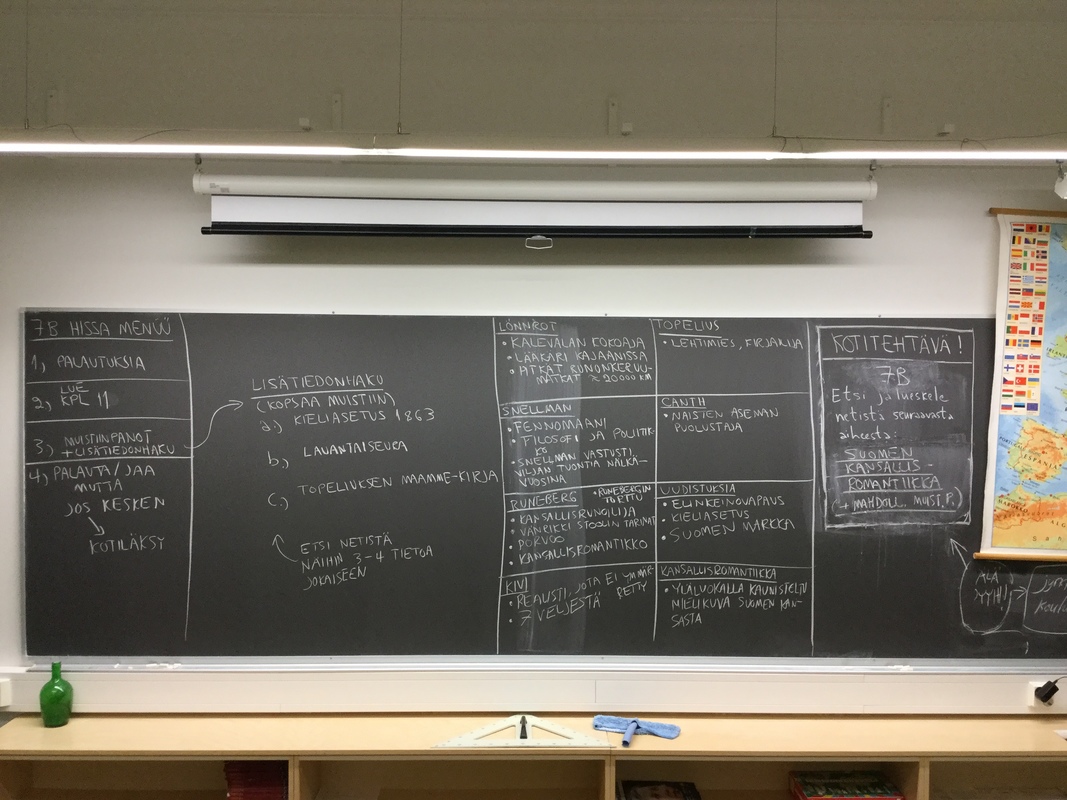 7B HISSA MENÜÜ
1) PALAUTUKSIA
2) LUE
KPL 11
3) MUISTIINPANOT
+ LISÄTIEDONHAKU
4) PALAUTA/ JAA
MUTTA
JOS KESKEN
KOTILÄKSY
LISÄTIEDONHAKU
(KOPSAA MUISTIIN)
a) KIELIASETUS 1863
b) LAUANTAISEURA
c) TOPELIUKSEN MAAMME-KIRJA
ETSI NETISTÄ
NÄIHIN 3-4 TIETOA
JOKAISEEN
LÖNNROT
• KALEVALAN KOKOAJA
• LÄÄKÄRI KAJAANISSA
• PITKÄT RUNONKERUU-
MATKAT ≈ 20000 KM
SNELLMAN
• FENNOMAANI
• FILOSOFI JA POLIITIK-
KO
• SNELLMAN VASTUSTI
VILJAN TUONTIA NÄLKÄ-
VUOSINA
RUNEBERG
• RUNEBERGIN
TORTTU
• KANSALLISRUNOILIJA
• VÄNRIKKI STOOLIN TARINAT
PORVOO
• KANSALLISROMANTIKKO
KIVI
• REALISTI, JOTA EI YMMÄR-
RETTY
• 7 VELJESTÄ
TOPELIUS
• LEHTIMIES, KIRJAILIJA
CANTH
• NAISTEN ASEMAN
PUOLUSTAJA
UUDISTUKSIA
• ELINKEINOVAPAUS
• KIELIASETUS
• SUOMEN MARKKA
KANSALLISROMANTIIKKA
• YLÄLUOKALLA KAUNISTELTU
MIELIKUVA SUOMEN KAN-
SASTA
KOTITEHTÄVÄ!
7B
Etsi ja lueskele
netistä seuraavasta
aiheesta:
SUOMEN
KANSALLIS-
ROMANTIIKKA
(+ MAHDOLL. MUIST.P.)
ÄLÄ
PYYHI!
ESPANJA